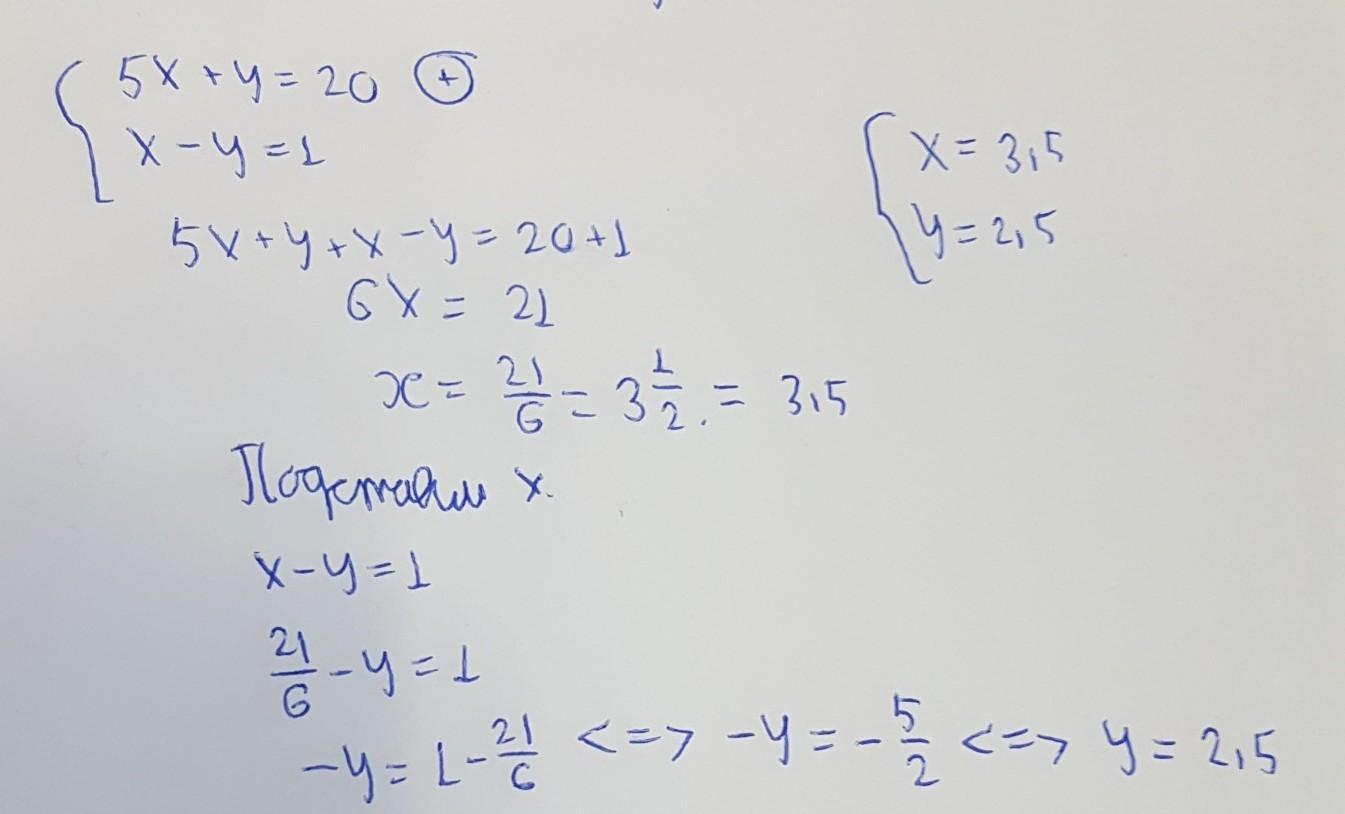 5x + y = 20 ⊕
x - y = 1
5x + y + x - y = 20 + 1
6x = 21
x = 21/6 = 3 1/2. = 3,5
Подставим x.
x - y = 1
21/6 - y = 1
-y = 1 - 21/6 <=> -y = - 5/2 <=> y = 2,5
x = 3,5
y = 2,5